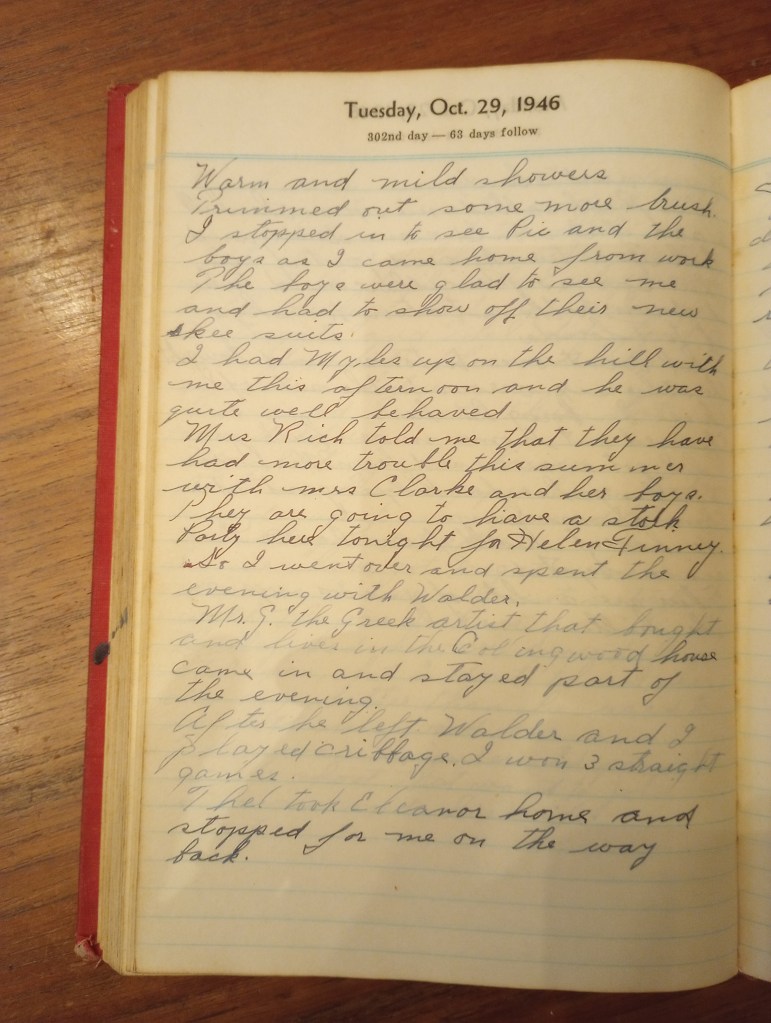 Tuesday, Oct. 29, 1946
302nd day — 63 days follow
Warm and mild showers
Trimmed out some more brush.
I stopped in to see Pic and the
boys as I came home from work
The boys were glad to see me
and had to show off their new
skee suits.
I had Myles up on the hill with
me this afternoon and he was
quite well behaved
Mrs Rich told me that they have
had more trouble this summer
with mrs Clarke and her boys.
They are going to have a stork
Party here tonight for Helen Finney.
So I went over and spent the
evening with Walder.
Mr. G. the Greek artist that bought
and lives in the Colingwood house
came in and stayed part of
the evening.
After he left Walder and I
played cribbage. I won 3 straight
games.
Thel took Eleanor home and
stopped for me on the way
back.